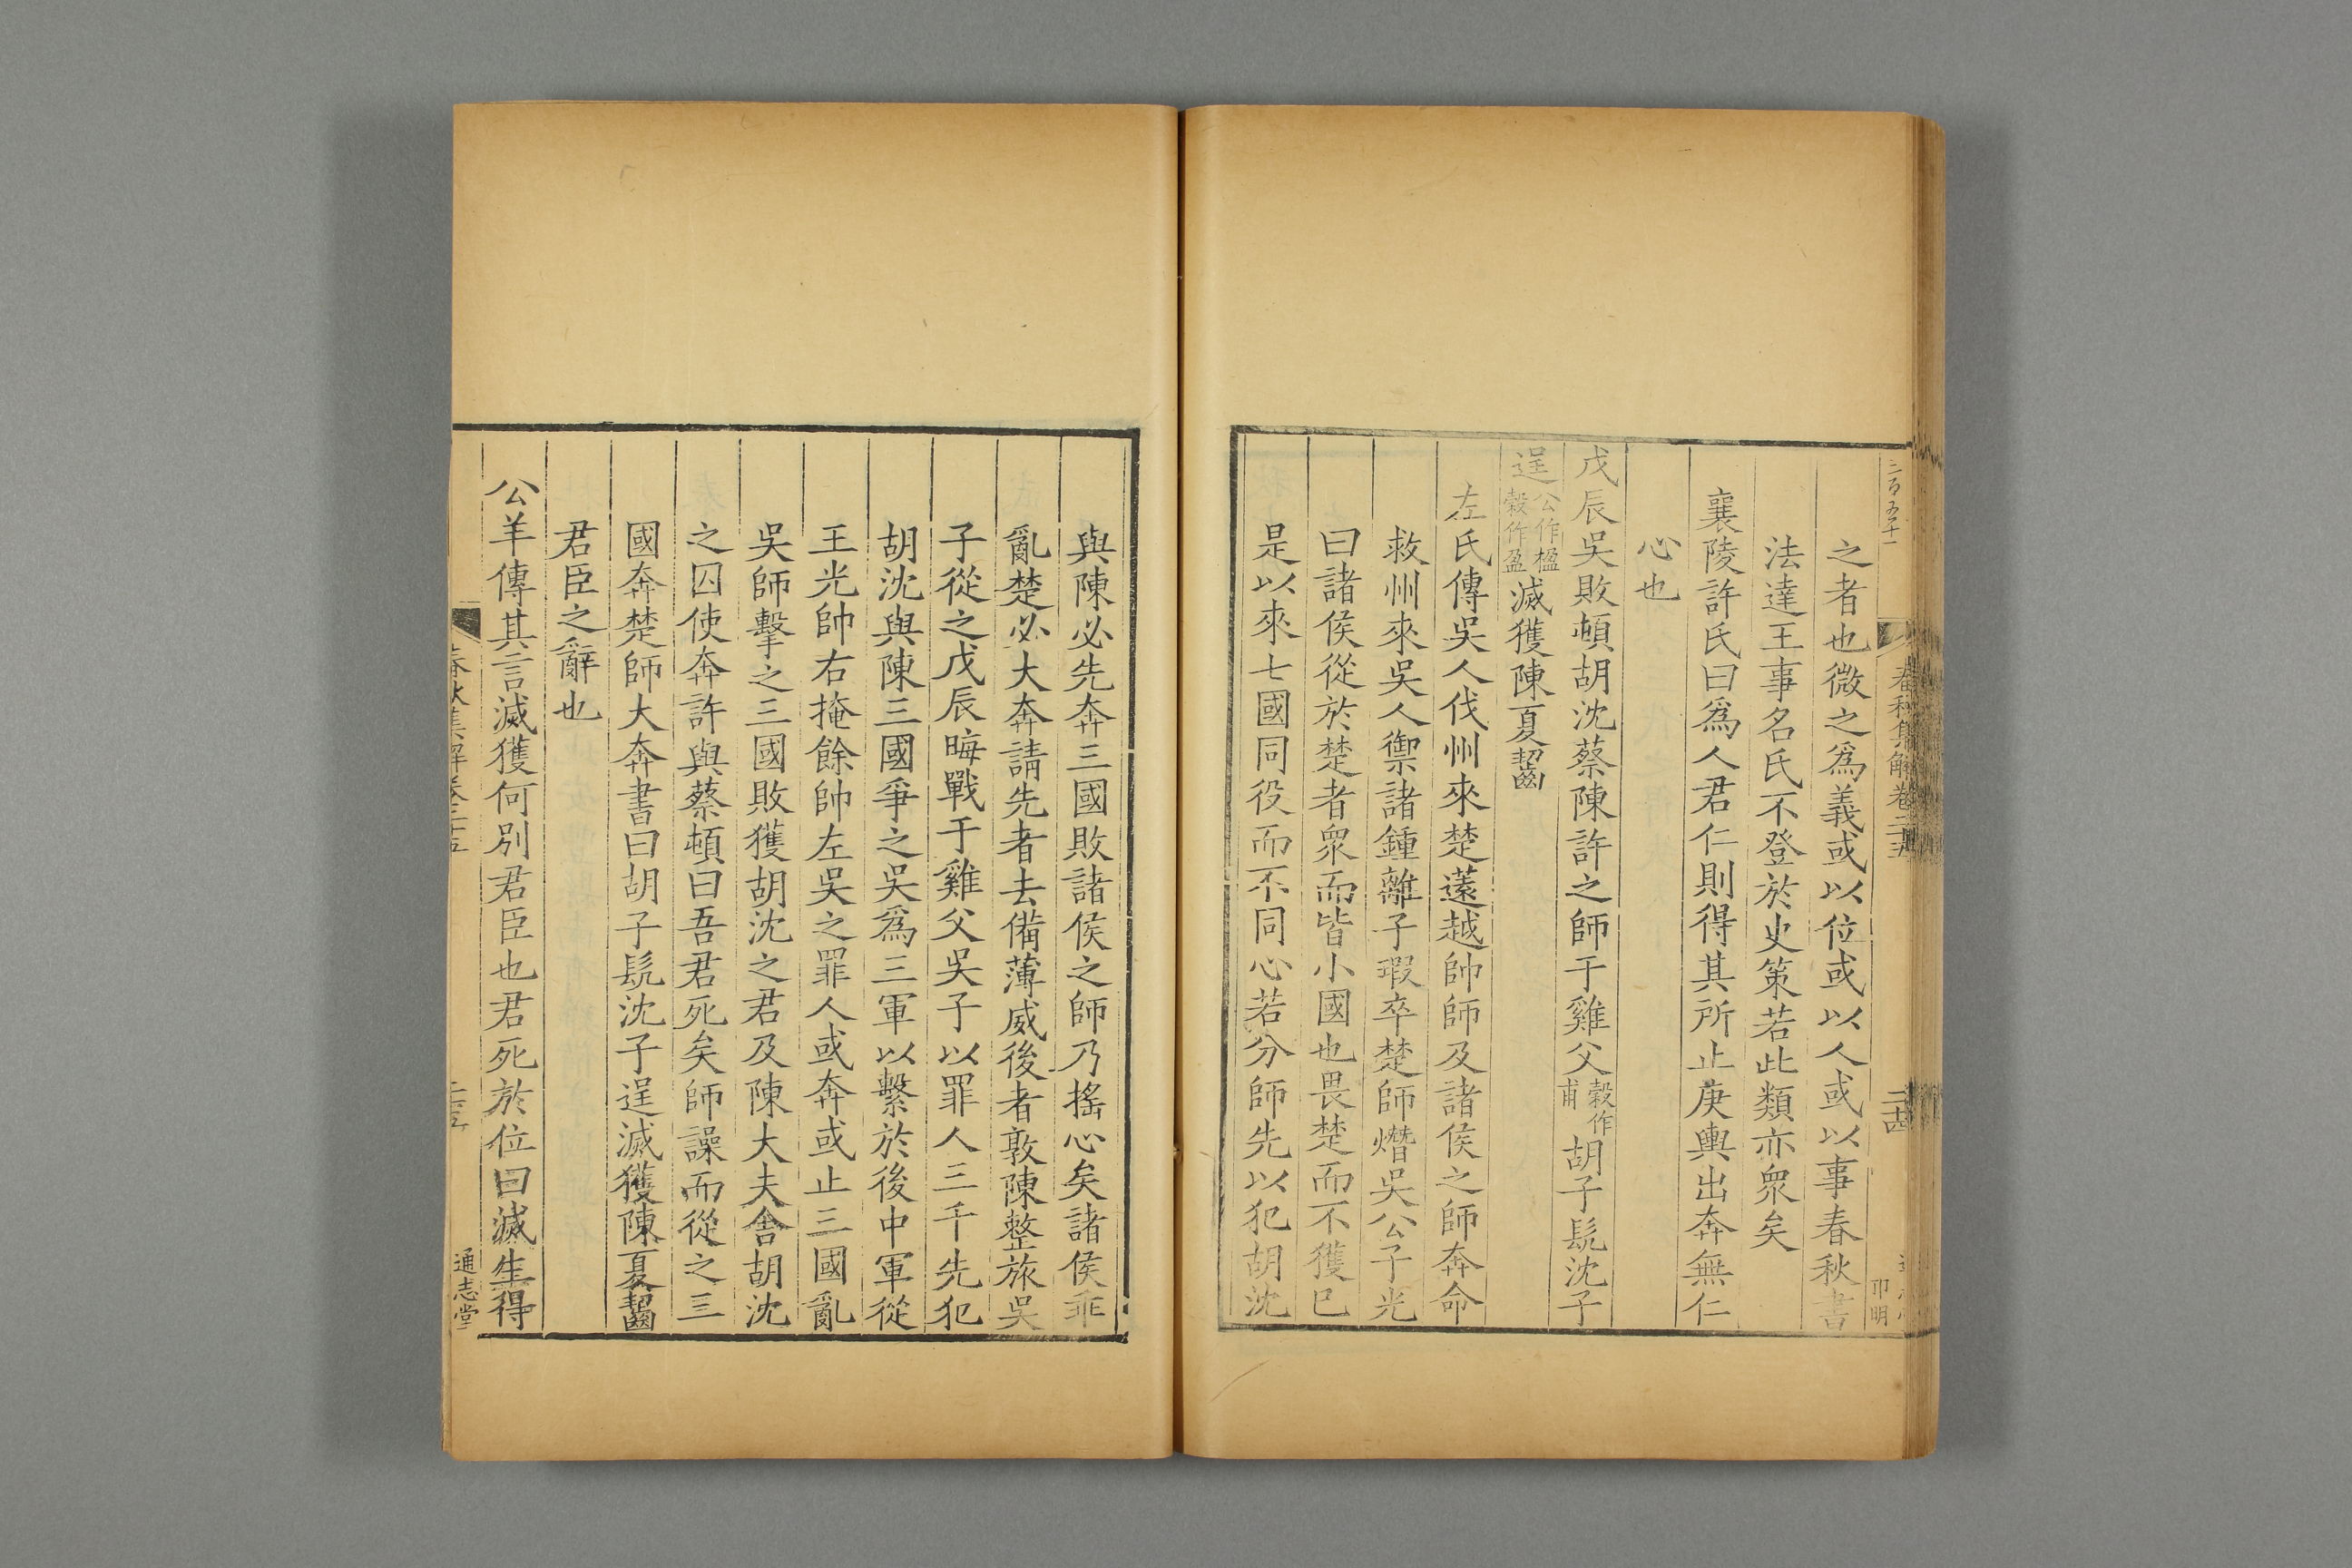 三百五十一
春秋集解卷二十五
三十四
卭明
之者也微之爲義或以位或以人或以事春秋書
法達王事名氏不登於史策若此類亦衆矣
襄陵許氏曰爲人君仁則得其所止庚輿出奔無仁
心也
戊辰吳敗頓胡沈蔡陳許之師于雞父穀作甫胡子髡沈子
逞公作楹穀作盈滅獲陳夏齧
左氏傳吳人伐州來楚薳越帥師及諸侯之師奔命
救州來吳人禦諸鍾離子瑕卒楚師熸吳公子光
曰諸侯從於楚者衆而皆小國也畏楚而不獲已
是以來七國同役而不同心若分師先以犯胡沈
與陳必先奔三國敗諸侯之師乃搖心矣諸侯乖
亂楚必大奔請先者去備薄威後者敦陳整旅吳
子從之戊辰晦戰于雞父吳子以罪人三千先犯
胡沈與陳三國爭之吳爲三軍以繫於後中軍從
王光帥右掩餘帥左吳之罪人或奔或止三國亂
吳師擊之三國敗獲胡沈之君及陳大夫舍胡沈
之囚使奔許與蔡頓曰吾君死矣師譟而從之三
國奔楚師大奔書曰胡子髡沈子逞滅獲陳夏齧
君臣之辭也
公羊傳其言滅獲何別君臣也君死於位曰滅生得
春秋集解卷二十五
通志堂